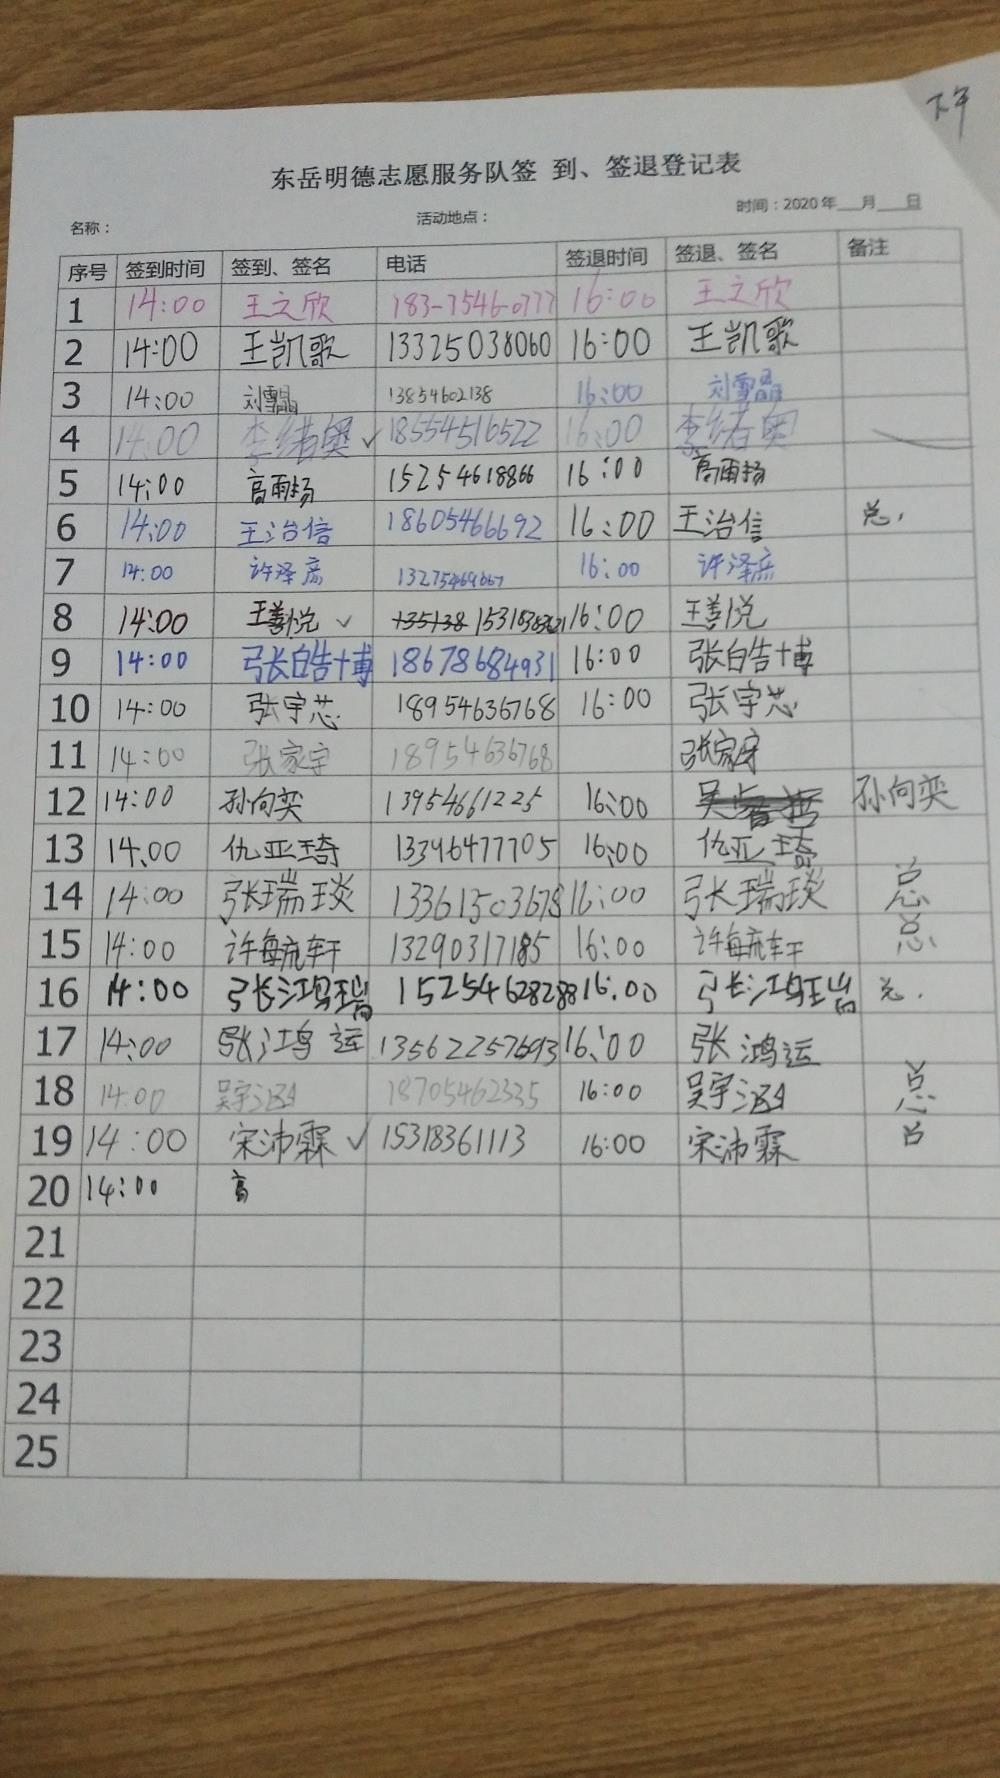 下午
东岳明德志愿服务队签 到、签退登记表
名称： 活动地点： 时间：2020年___月___日
序号 签到时间 签到、签名 电话 签退时间 签退、签名 备注
1 14:00 王之欣 183-7546-0777 16:00 王之欣
2 14:00 王凯歌 13325038060 16:00 王凯歌
3 14:00 刘雪晶 13854602138 16:00 刘雪晶
4 14:00 李绪奥 ✓ 18554516522 16:00 李绪奥
5 14:00 高雨扬 15254618866 16:00 高雨扬
6 14:00 王治信 18605466692 16:00 王治信 总.
7 14:00 许泽彦 13275469667 16:00 许泽彦
8 14:00 王善悦 ✓ 16:00 王善悦
9 14:00 张皓博 18678684931 16:00 张皓博
10 14:00 张宇芯 18954636768 16:00 张宇芯
11 14:00 张家宇 18954636768 张家宇
12 14:00 孙向奕 13954661225 16:00 孙向奕
13 14:00 仇亚琦 13396477705 16:00 仇亚琦
14 14:00 张瑞琰 13361503678 16:00 张瑞琰 总
15 14:00 许毓轩 13290317185 16:00 许毓轩 总
16 14:00 张鸿瑞 15254628288 16:00 张鸿瑞 总.
17 14:00 张鸿运 13562257693 16:00 张鸿运
18 14:00 吴宇涵 18705462335 16:00 吴宇涵 总
19 14:00 宋沛霖 ✓ 15318361113 16:00 宋沛霖
20 14:00 高
21
22
23
24
25